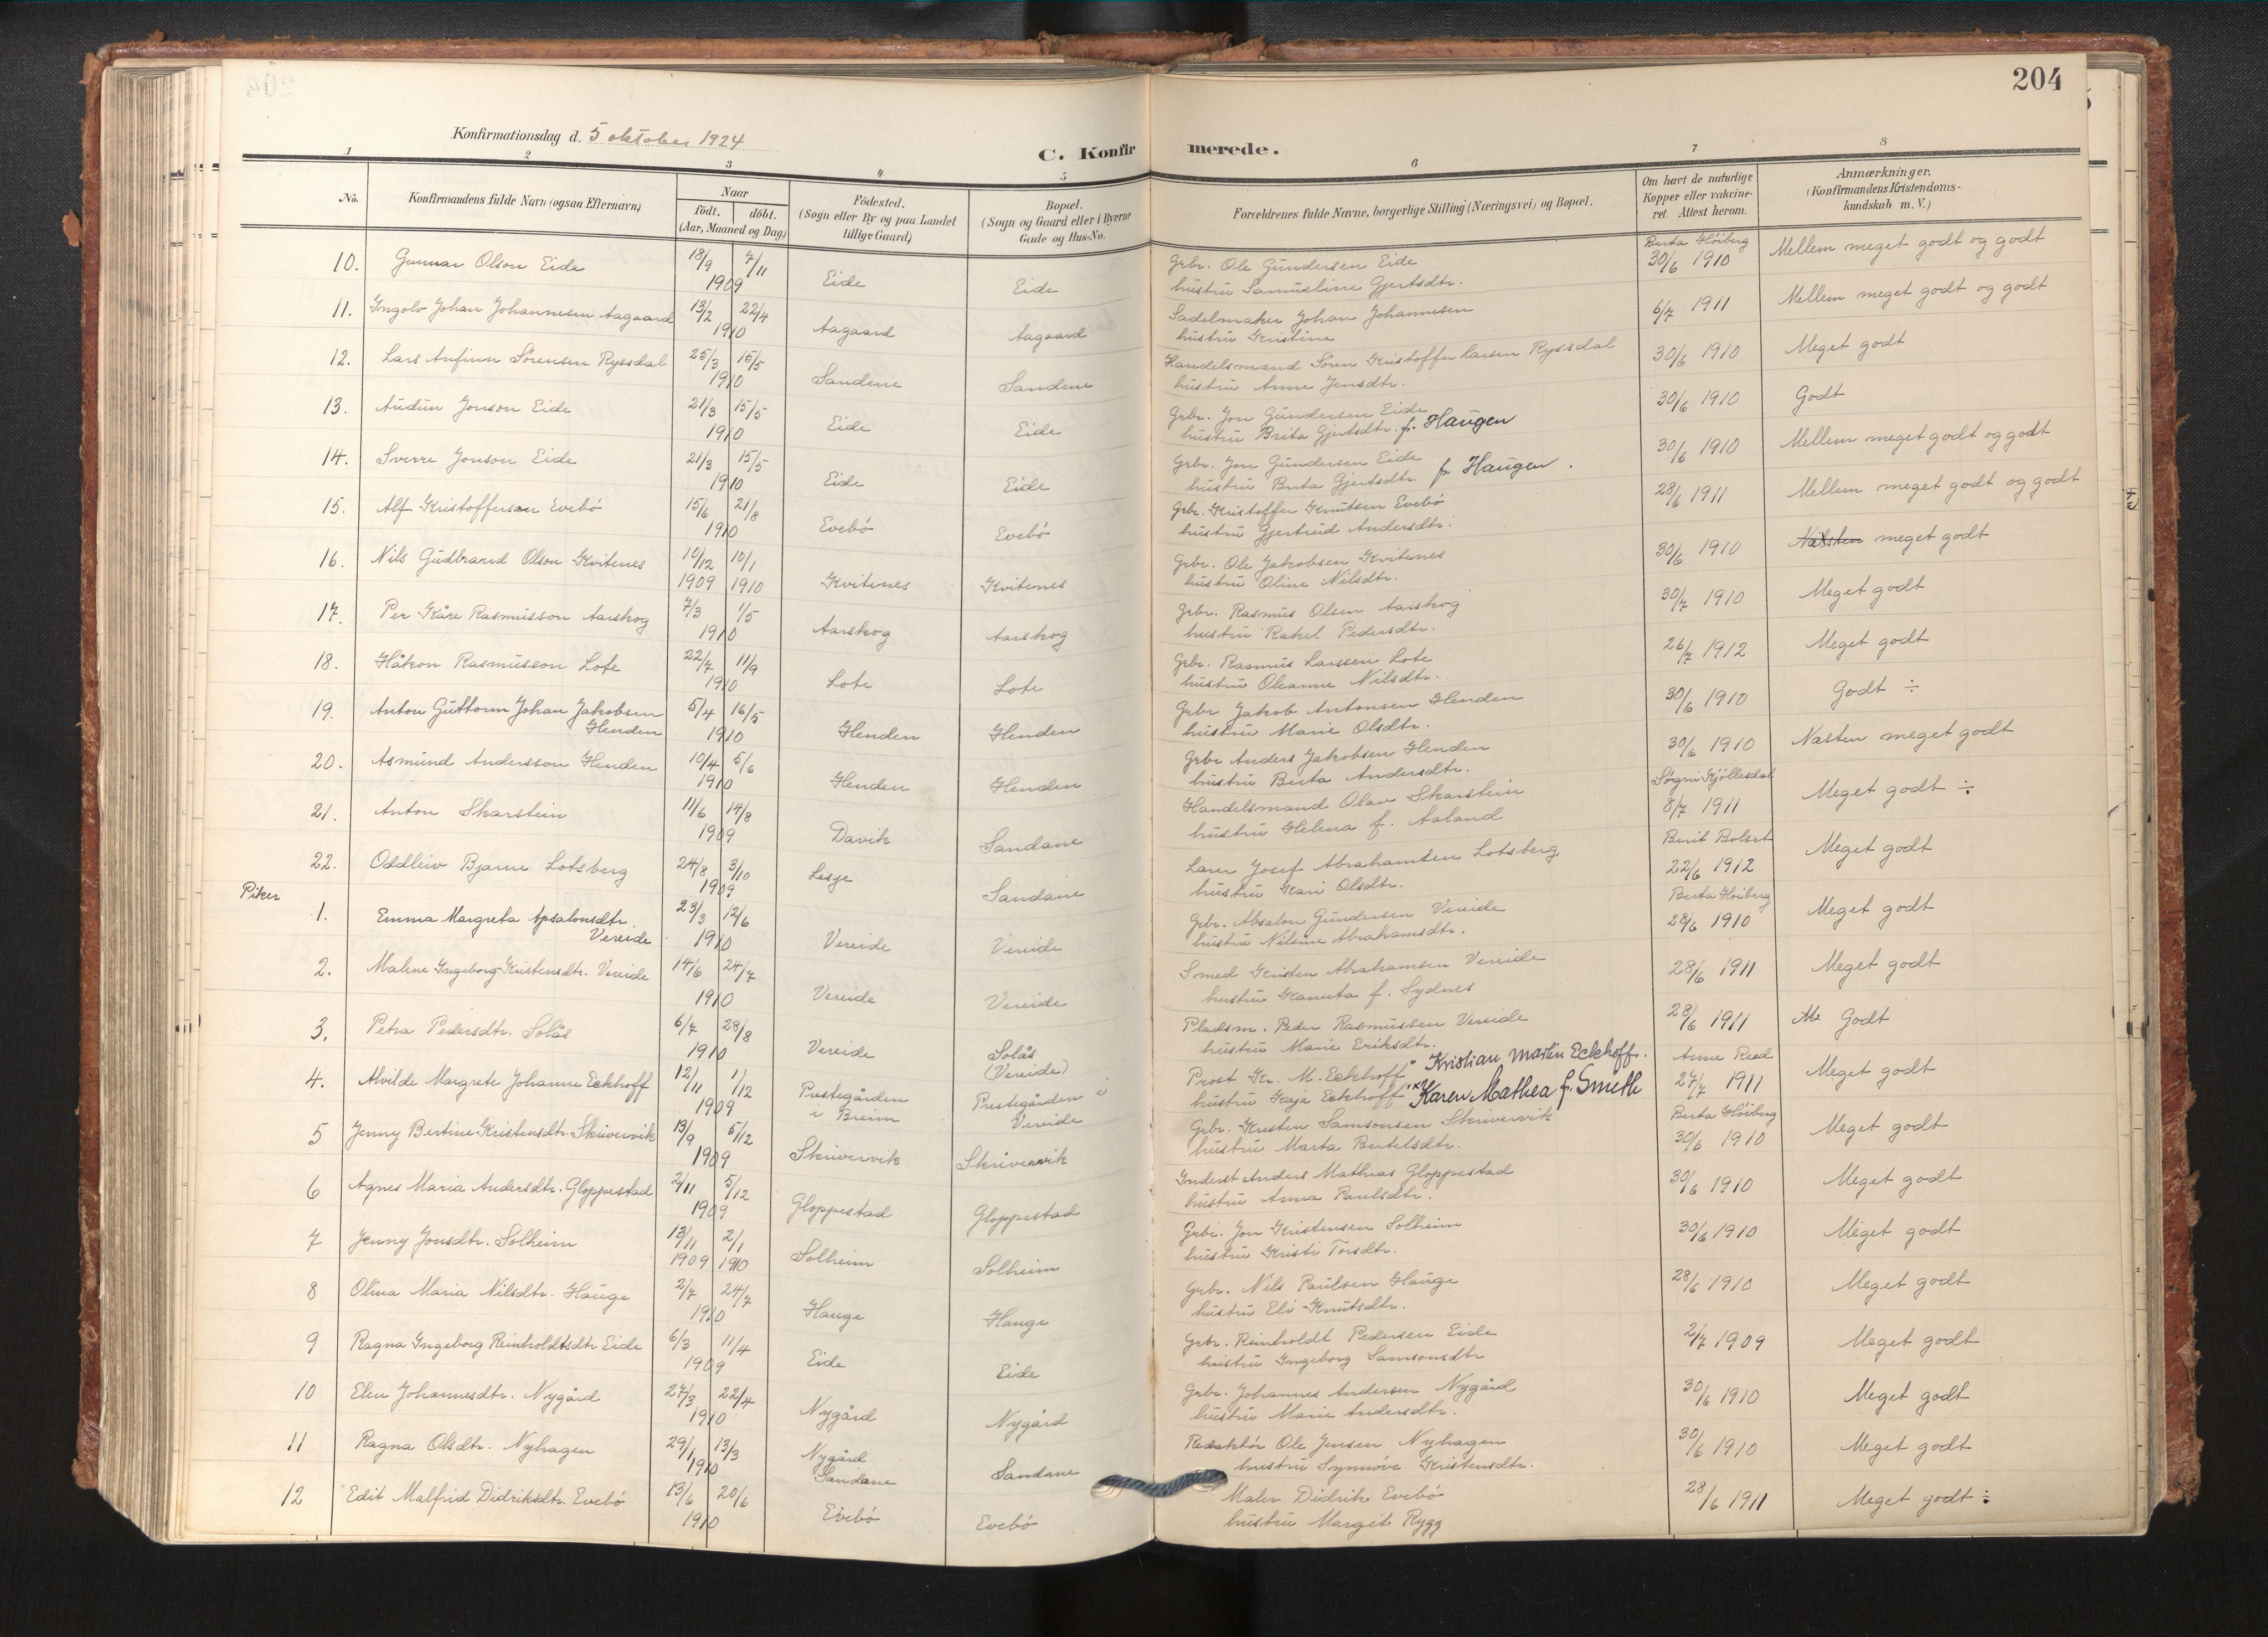 204
Konfirmationsdag d. 5 oktober 1924
C. Konfirmerede.
1 2 3 4 5 6 7 8
No.
Konfirmandens fulde Navn (ogsaa Efternavn)
Naar
født. døbt.
(Aar, Maaned og Dag)
Fødested.
(Sogn eller By og paa Landet
tillige Gaard)
Bopæl.
(Sogn og Gaard eller i Byerne
Gade og Hus-No.
Forældrenes fulde Navne, borgerlige Stilling (Næringsvei) og Bopæl.
Om havt de naturlige
Kopper eller vakcine-
ret. Attest herom.
Anmærkninger.
(Konfirmandens Kristendoms-
kundskab m. V.)
10. Gunnar Olson Eide 18/9 7/11 1909 Eide Eide
Grbr. Ole Gundersen Eide
hustru Samueline Gjertsdtr.
Berta Höiberg
30/6 1910 Mellem meget godt og godt
11. Ingolv Johan Johannesen Aagaard 13/2 22/4 1910 Aagaard Aagaard
Sadelmaker Johan Johannesen
hustru Kristine
6/7 1911 Mellem meget godt og godt
12. Lars Anfinn Sörensen Ryssdal 25/3 15/5 1910 Sandene Sandene
Handelsmand Sören Kristoffer Larsen Ryssdal
hustru Anne Jensdtr.
30/6 1910 Meget godt
13. Audun Jonson Eide 21/3 15/5 1910 Eide Eide
Grbr. Jon Gundersen Eide
hustru Brita Gjertsdtr. f. Haugen
30/6 1910 Godt
14. Sverre Jonson Eide 21/3 15/5 1910 Eide Eide
Grbr. Jon Gundersen Eide
hustru Berta Gjertsdtr. f. Haugen.
30/6 1910 Mellem meget godt og godt
15. Alf Kristoffersen Evebö 15/6 21/8 1910 Evebö Evebö
Grbr. Kristoffer Knutsen Evebö
hustru Gjertrud Andersdtr.
28/6 1911 Mellem meget godt og godt
16. Nils Gudbrand Olson Kvitenes 10/12 10/1 1909 1910 Kvitenes Kvitenes
Grbr. Ole Jakobsen Kvitenes
hustru Oline Nilsdtr.
30/6 1910 meget godt
17. Per Kåre Rasmusson Aarskog 7/3 1/5 1910 Aarskog Aarskog
Grbr. Rasmus Olsen Aarskog
hustru Rakel Pedersdtr.
30/7 1910 Meget godt
18. Håkon Rasmusson Lote 22/7 11/9 1910 Lote Lote
Grbr. Rasmus Larssen Lote
hustru Oleanne Nilsdtr.
26/7 1912 Meget godt
19. Anton Guttorm Johan Jakobsen
Henden 5/4 16/5 1910 Henden Henden
Grbr Jakob Antonsen Henden
hustru Marie Olsdtr.
30/6 1910 Godt ÷
20. Asmund Andersson Henden 10/4 5/6 1910 Henden Henden
Grbr Anders Jakobsen Henden
hustru Berta Andersdtr.
30/6 1910 Næsten meget godt
21. Anton Skarstein 11/6 14/8 1909 Davik Sandane
Handelsmand Olav Skarstein
hustru Helena f. Aaland
Søgni Kjöllesdal
8/7 1911 Meget godt ÷
22. Oddleiv Bjarne Lotsberg 24/8 3/10 1909 Lesje Sandane
Lærer Josef Abrahamsen Lotsberg
hustru Kari Olsdtr.
Berit Bolset
22/6 1912 Meget godt
Piker
1. Emma Margreta Apsalonsdtr.
Vereide 23/3 12/6 1910 Vereide Vereide
Grbr. Absalon Gundersen Vereide
hustru Nilsine Abrahamsdtr.
Berta Höiberg
28/6 1910 Meget godt
2. Malene Ingeborg Kristensdtr. Vereide 14/6 24/7 1910 Vereide Vereide
Smed Kristen Abrahamsen Vereide
hustru Kanuta f. Sydnes
28/6 1911 Meget godt
3. Petra Pedersdtr. Solås 6/7 28/8 1910 Vereide Solås
(Vereide)
Pladsm. Peder Rasmussen Vereide
hustru Marie Eriksdtr.
28/6 1911 Godt
4. Alvilde Margrete Johanne Eckhoff 12/11 1/12 1909 Prestegården
i Breim
Prestegården i
Vereide
Prost Kr. M. Eckhoff " Kristian Martin Eckhoff.
hustru Kaja Eckhoff " Karen Mathea f. Smith
Anne Reed
27/7 1911 Meget godt
5 Jenny Bertine Kristensdtr. Skrivervik 13/9 5/12 1909 Skrivervik Skrivervik
Grbr. Kristen Samsonsen Skrivervik
hustru Marta Bertelsdtr.
Berta Höiberg
30/6 1910 Meget godt
6 Agnes Maria Andersdtr. Gloppestad 2/11 5/12 1909 Gloppestad Gloppestad
Inderst Anders Mathias Gloppestad
hustru Anna Paulsdtr.
30/6 1910 Meget godt
7 Jenny Jonsdtr. Solheim 13/11 2/1 1909 1910 Solheim Solheim
Grbr. Jon Kristensen Solheim
hustru Kristi Torsdtr.
30/6 1910 Meget godt
8 Olina Maria Nilsdtr. Hauge 2/7 24/7 1910 Hauge Hauge
Grbr. Nils Paulsen Hauge
hustru Eli Knutsdtr.
28/6 1910 Meget godt
9 Ragna Ingeborg Reinholdtsdtr Eide 6/3 11/4 1909 Eide Eide
Grbr. Reinholdt Pedersen Eide
hustru Ingeborg Samsonsdtr
2/7 1909 Meget godt
10 Elen Johannesdtr. Nygård 27/3 22/4 1910 Nygård Nygård
Grbr. Johannes Andersen Nygård
hustru Marie Andersdtr.
30/6 1910 Meget godt
11 Ragna Olsdtr. Nyhagen 29/1 13/3 1910 Nygård
Sandane Sandane
Redaktör Ole Jensen Nyhagen
hustru Synnöve Kristensdtr.
30/6 1910 Meget godt
12 Edit Malfrid Didriksdtr. Evebö 13/6 20/6 1910 Evebö Evebö
Maler Didrik Evebö
hustru Margit Rygg
28/6 1911 Meget godt ÷